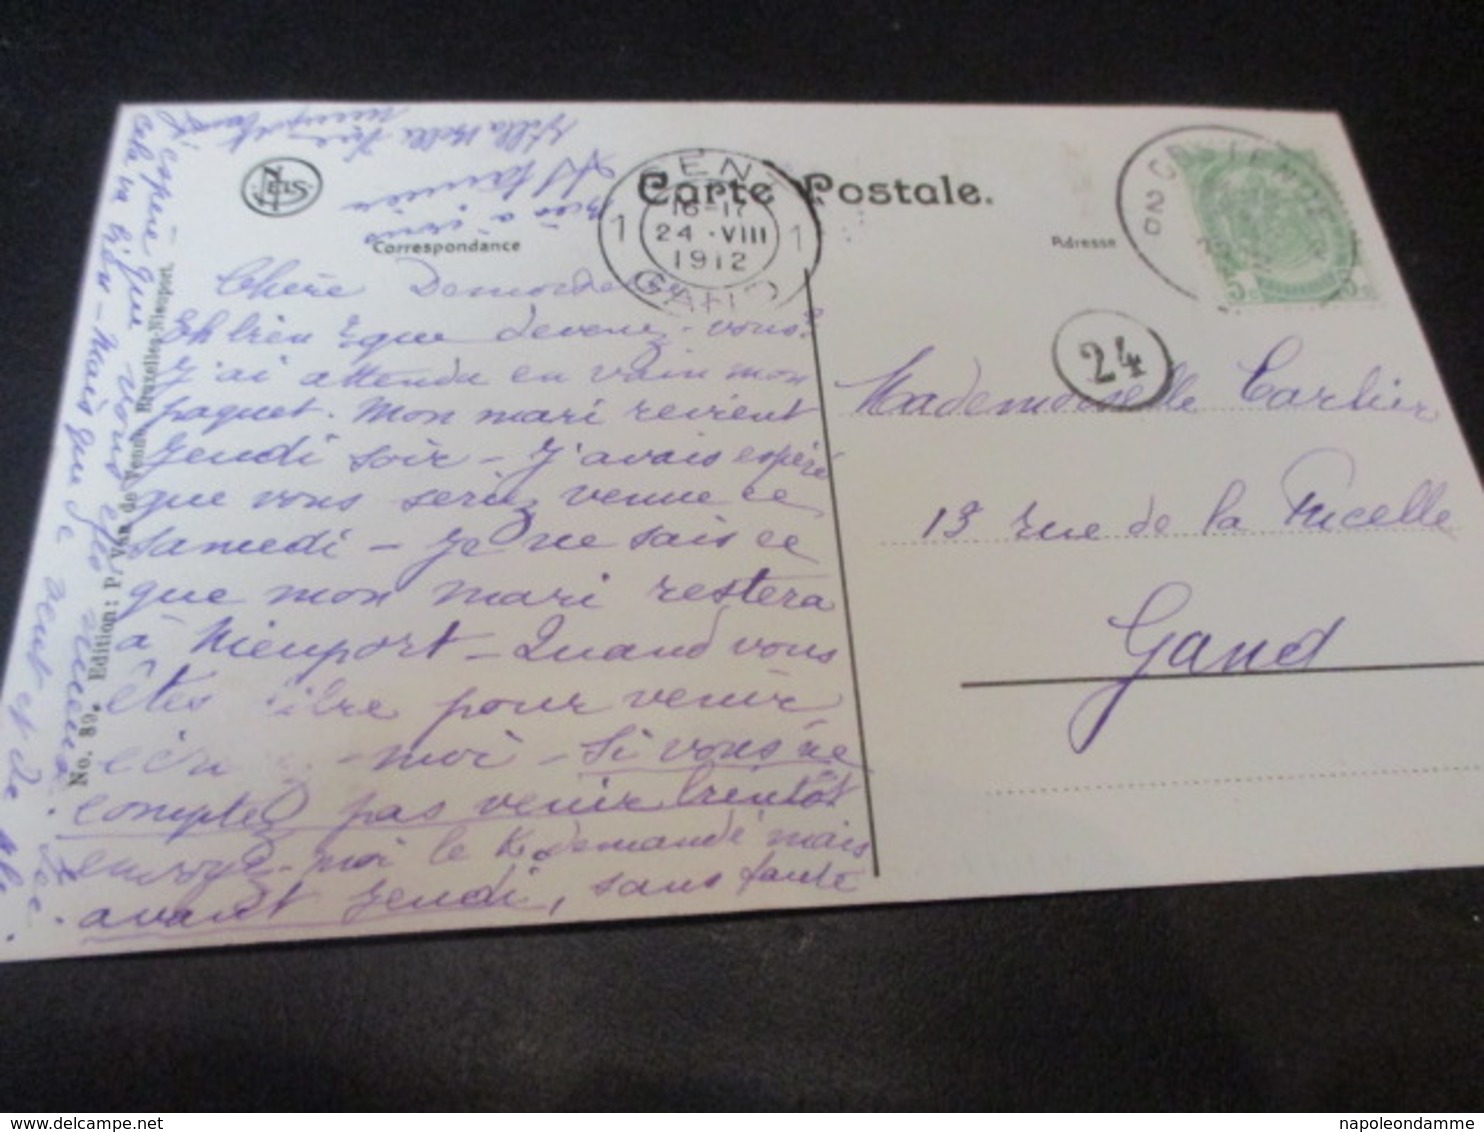 Carte Postale.
Correspondance
Adresse
NELS
GENT
16-17
1 24·VIII 1
1912
GAND
24
Chère Demoiselle
Eh bien que devenez-vous?
J'ai attendu en vain mon
paquet. Mon mari revient
Jeudi soir - J'avais espéré
que vous seriez venue ce
samedi - Je ne sais ce
que mon mari restera
à Nieuport - Quand vous
êtes libre pour venir
-moi - Si vous ne
comptez pas venir bientôt
envoyez-moi le demandé mais
avant Jeudi, sans faute
J'espère que vous
cela va bien - Mais que de vent et de
Villa Belle Vue
Mademoiselle Carlier
13 rue de la Fucelle
Gand
No. 89. Edition: P. Van de Venne, Bruxelles-Nieuport.
napoleondamme